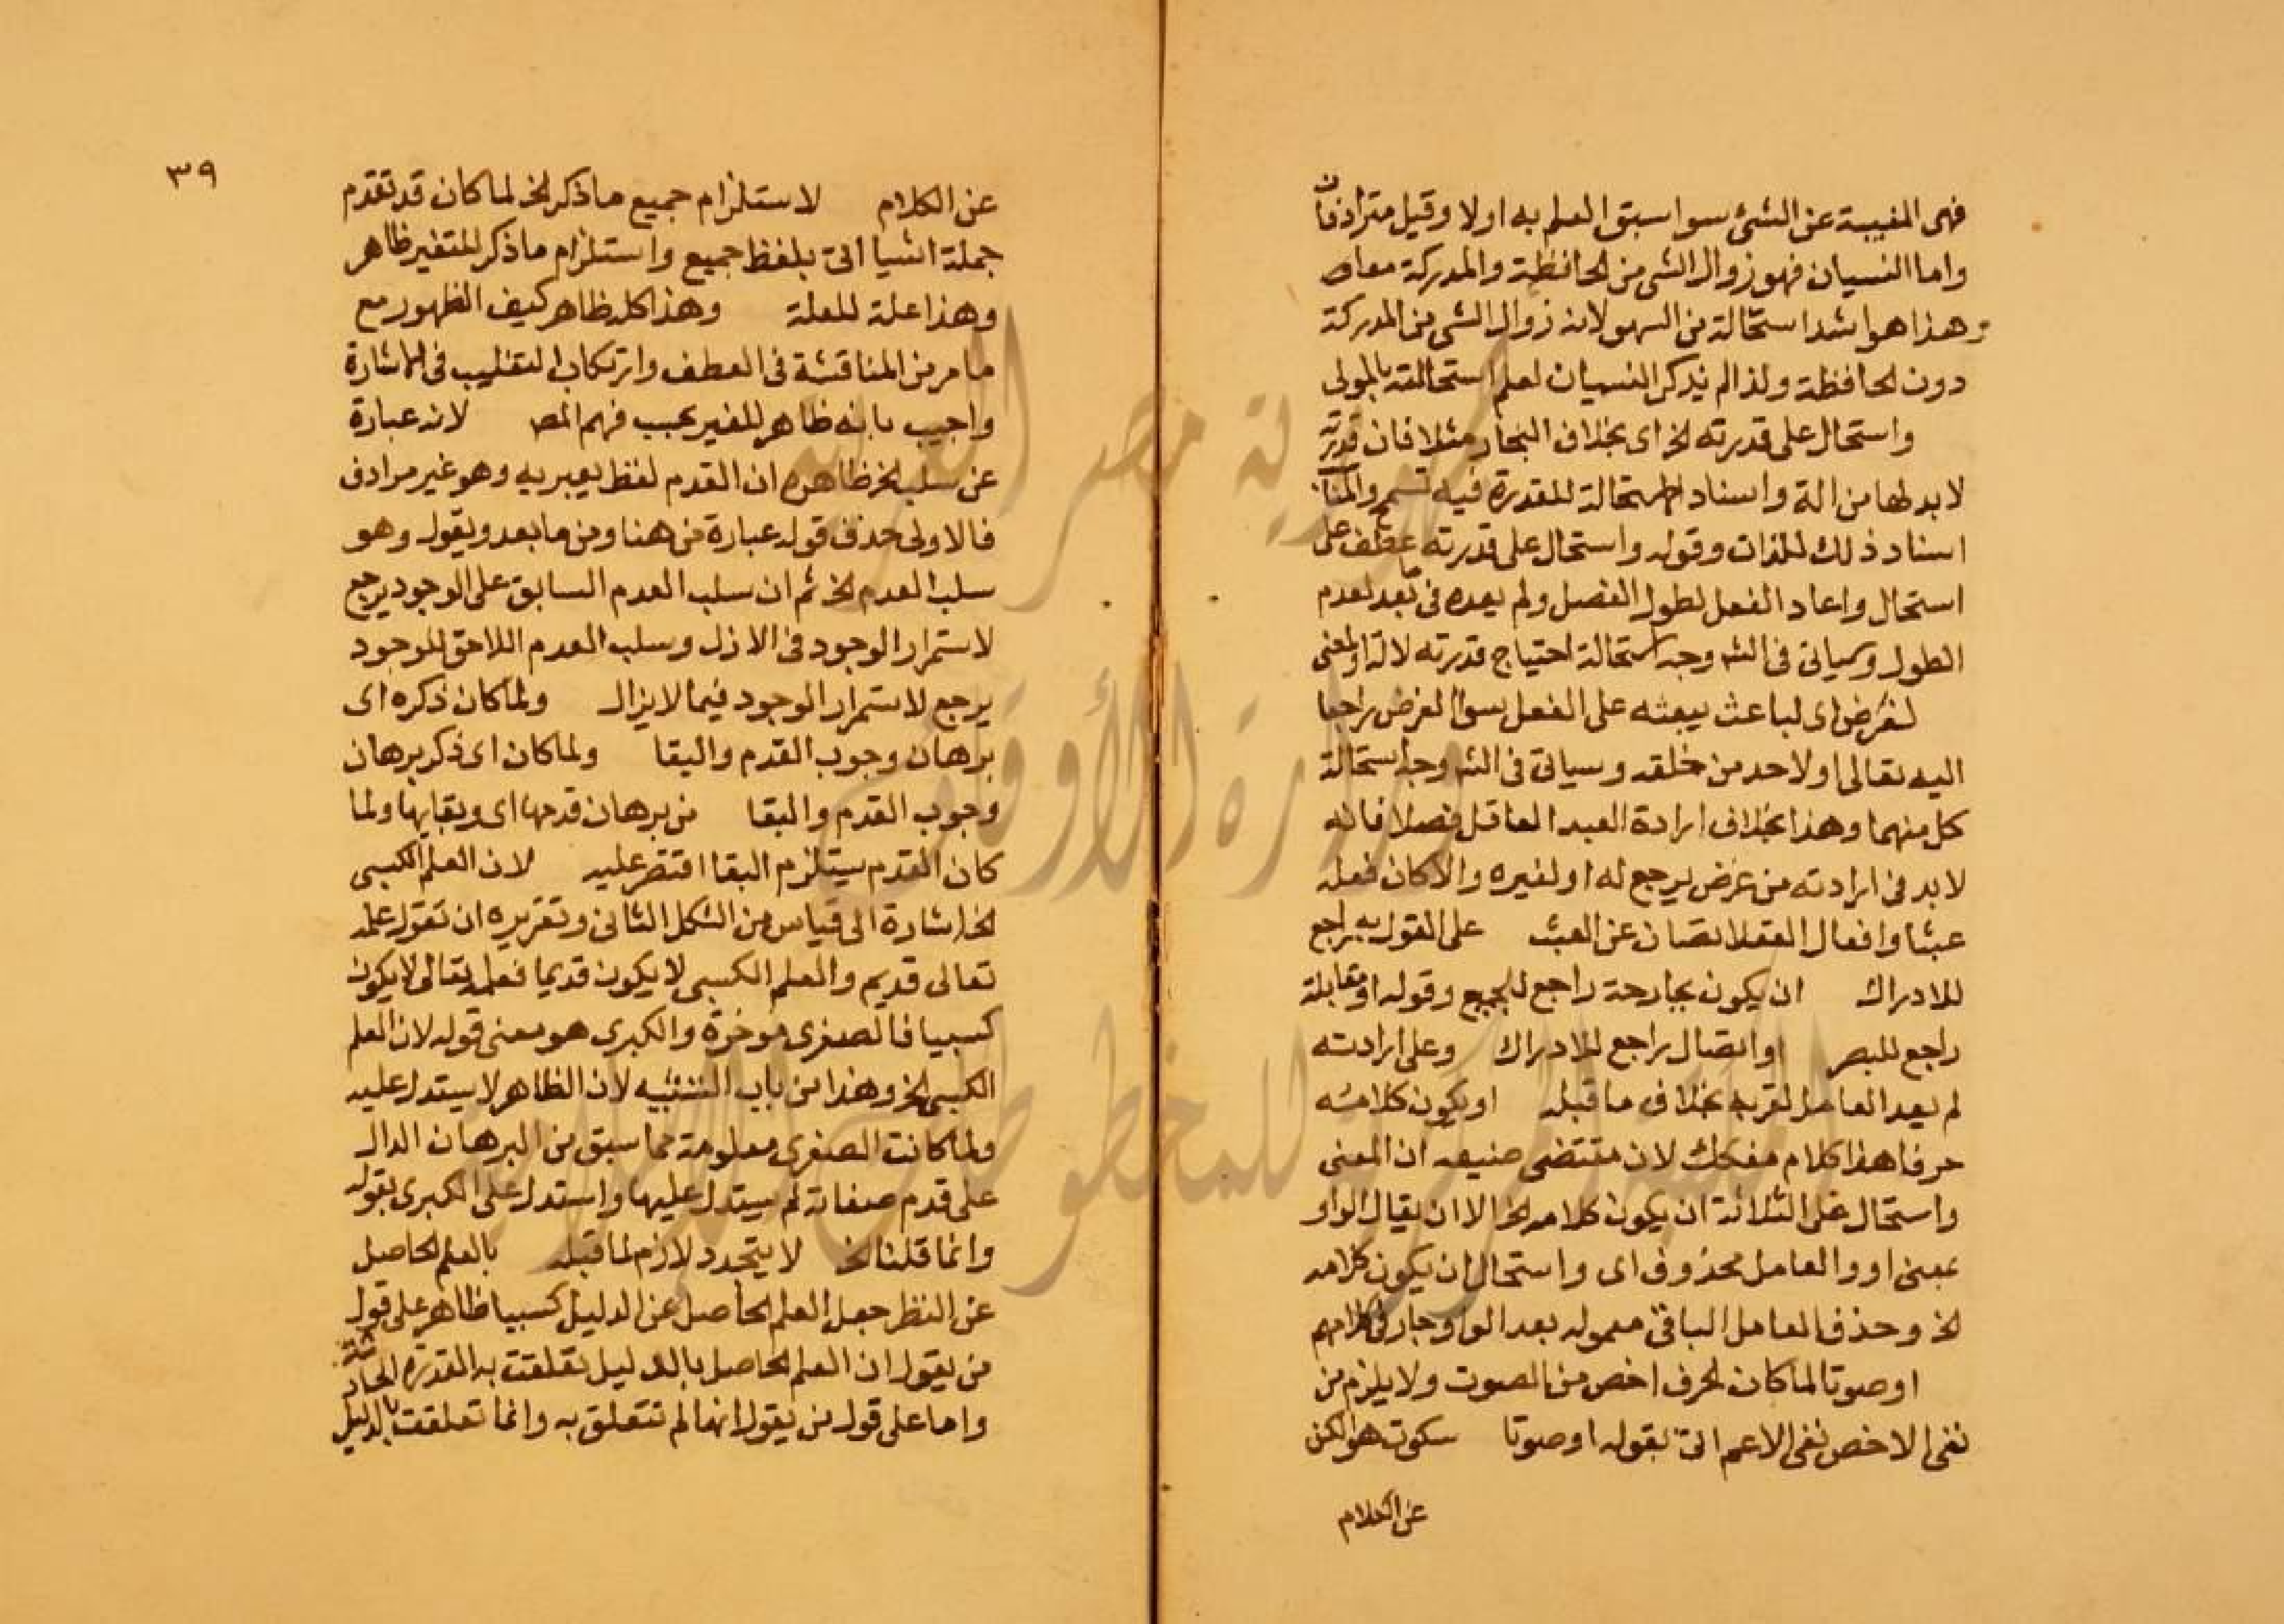 فهى الغيبة عن الشئ سوا سبق العلم به اولا وقيل مترادفان
واما النسيان فهو زوال الشى من الحافظة والمدركة معا اهـ
وهذا هو اشد استحالة من السهو لانه زوال الشى من المدركة
دون الحافظة ولذا لم يذكر النسيان لعلم استحالته بالاولى
واستحال على قدرته الخ اى بخلاف النجار مثلا فان قدرته
لا بد لها من الة واسناد الاستحالة للقدرة فيه تسمح والمناسب
اسناد ذلك للذات وقوله واستحال على قدرته عطف على
استحال واعاد الفعل لطول الفصل ولم يعده فى ما بعد لعدم
الطول وسياتى فى الشـ وجه استحالة احتياج قدرته لالة او لمعنى
لغرض اى لباعث يبعثه على الفعل سوا الغرض راجعا
اليه تعالى او لاحد من خلقه وسياتى فى الشـ وجه استحالة
كل منهما وهذا بخلاف ارادة العبد العاقل فضلا فانه
لا بد فى ارادته من غرض يرجع له او لغيره والا كان فعله
عبثا وافعال العقلا تصان عن العبث على القول به راجع
للادراك ان يكون بجارحة راجع للجميع وقوله او مقابلة
راجع للبصر او اتصال راجع للادراك وعلى ارادته
لم يعد العامل لقربه بخلاف ما قبله او يكون كلامه
حرفا هذا كلام مفكك لان مقتضى صنيعه ان المعنى
واستحال على الثلاثة ان يكون كلامه الخ الا ان يقال الواو
بمعنى او والعامل محذوف اى واستحال ان يكون كلامه
الخ وحذف العامل الباقى معموله بعد الواو جار فى كلامهم
او صوتا لما كان الحرف اخص من الصوت ولا يلزم من
نفى الاخص نفى الاعم اتى بقوله او صوتا سكوت هو الكن
عن الكلام
٣٩
عن الكلام لاستلزام جميع ما ذكر الخ لما كان قد تقدم
جملة اشيا اتى بلفظ جميع واستلزام ما ذكر للتغير ظاهر
وهذا علة للعلة وهذا كله ظاهر كيف الظهور مع
ما مر من المناقشة فى العطف وارتكاب التغليب فى الاشارة
واجيب بانه ظاهر للغير بحسب فهم المصـ لانه عبارة
عن سلب الخ ظاهره ان القدم لفظ يعبر به وهو غير مرادف
فالاولى حذف قوله عبارة من هنا ومن ما بعد ويقول وهو
سلب العدم الخ ثم ان سلب العدم السابق على الوجود يرجع
لاستمرار الوجود فى الازل وسلب العدم اللاحق للوجود
يرجع لاستمرار الوجود فيما لا يزال ولما كان ذكره اى
برهان وجوب القدم والبقا ولما كان اى ذكر برهان
وجوب القدم والبقا من برهان قدمها اى وبقايها ولما
كان القدم يستلزم البقا اقتصر عليه لان العلم الكسبى
الخ اشارة الى قياس من الشكل الثانى وتقريره ان تقول علمه
تعالى قديم والعلم الكسبى لا يكون قديما فعلمه تعالى لا يكون
كسبيا فالصغرى موخرة والكبرى هو معنى قوله لان العلم
الكسبى الخ وهذا من باب التنبيه لان الظاهر لا يستدل عليه
ولما كانت الصغرى معلومة مما سبق من البرهان الدال
على قدم صفاته لم يستدل عليها واستدل على الكبرى بقوله
وانما قلنا الخ لا يتجدد لازم لما قبله بالعلم الحاصل
عن النظر جعل العلم الحاصل عن الدليل كسبيا ظاهر على قول
من يقول ان العلم الحاصل بالدليل تعلقت به القدرة الحادثة
واما على قول من يقول انها لم تتعلق به وانما تعلقت بالدليل
جمهورية مصر العربية
وزارة الأوقاف
المكتبة المركزية للمخطوطات الإسلامية